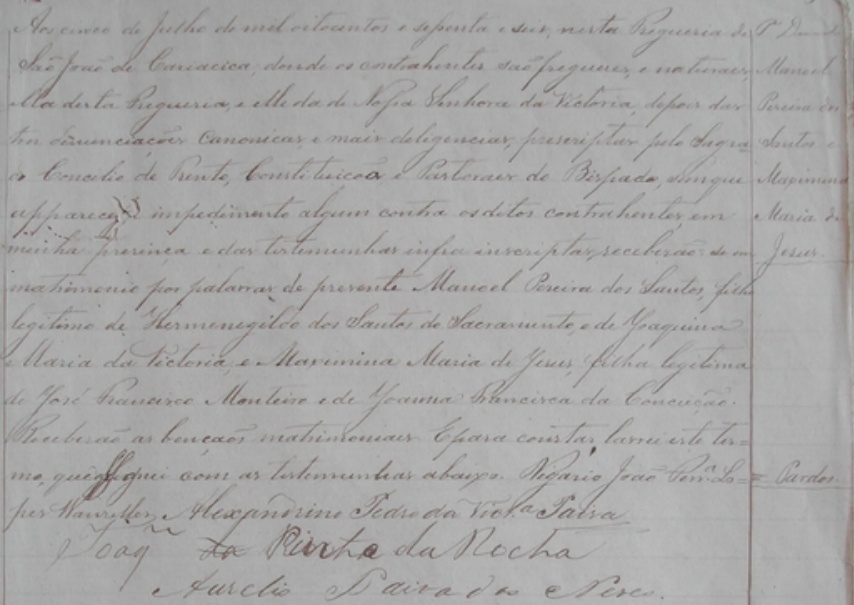 Aos cinco de Julho de mil oitocentos e setenta e seis, nesta Freguezia de
São João de Cariacica, donde os contrahentes são freguezes, e naturaes,
Ella desta Freguezia, e Elle da de Nossa Senhora da Victoria, depois das
tres denunciações canonicas, e mais deligencias, prescriptas pelo Sagra
do Concilio de Trento, Constituicão e Pastoraes do Bispado, sem que
apparecesse impedimento algum contra os ditos contrahentes, em
minha presença e das testemunhas infra inscriptas, receberão-se em
matrimonio por palavras de presente Manoel Pereira dos Santos, filho
legitimo de Hermenegildo dos Santos do Sacramento, e de Joaquina
Maria da Victoria, e Maximina Maria de Jesus, filha legitima
de José Francisco Monteiro e de Joanna Francisca da Conceição.
Receberão as bençaõs matrimoniaes. E para constar lavrei este ter=
mo, que assignei com as testemunhas abaixo. Vigario João Ferrª Lo=
pes Alexandrino Pedro da Victª Paiva
Joaqᵐ da Rocha
Aurelio Paiva das Neves.
Manoel
Pereira dos
Santos e
Maximina
Maria de
Jesus.
= Pardos